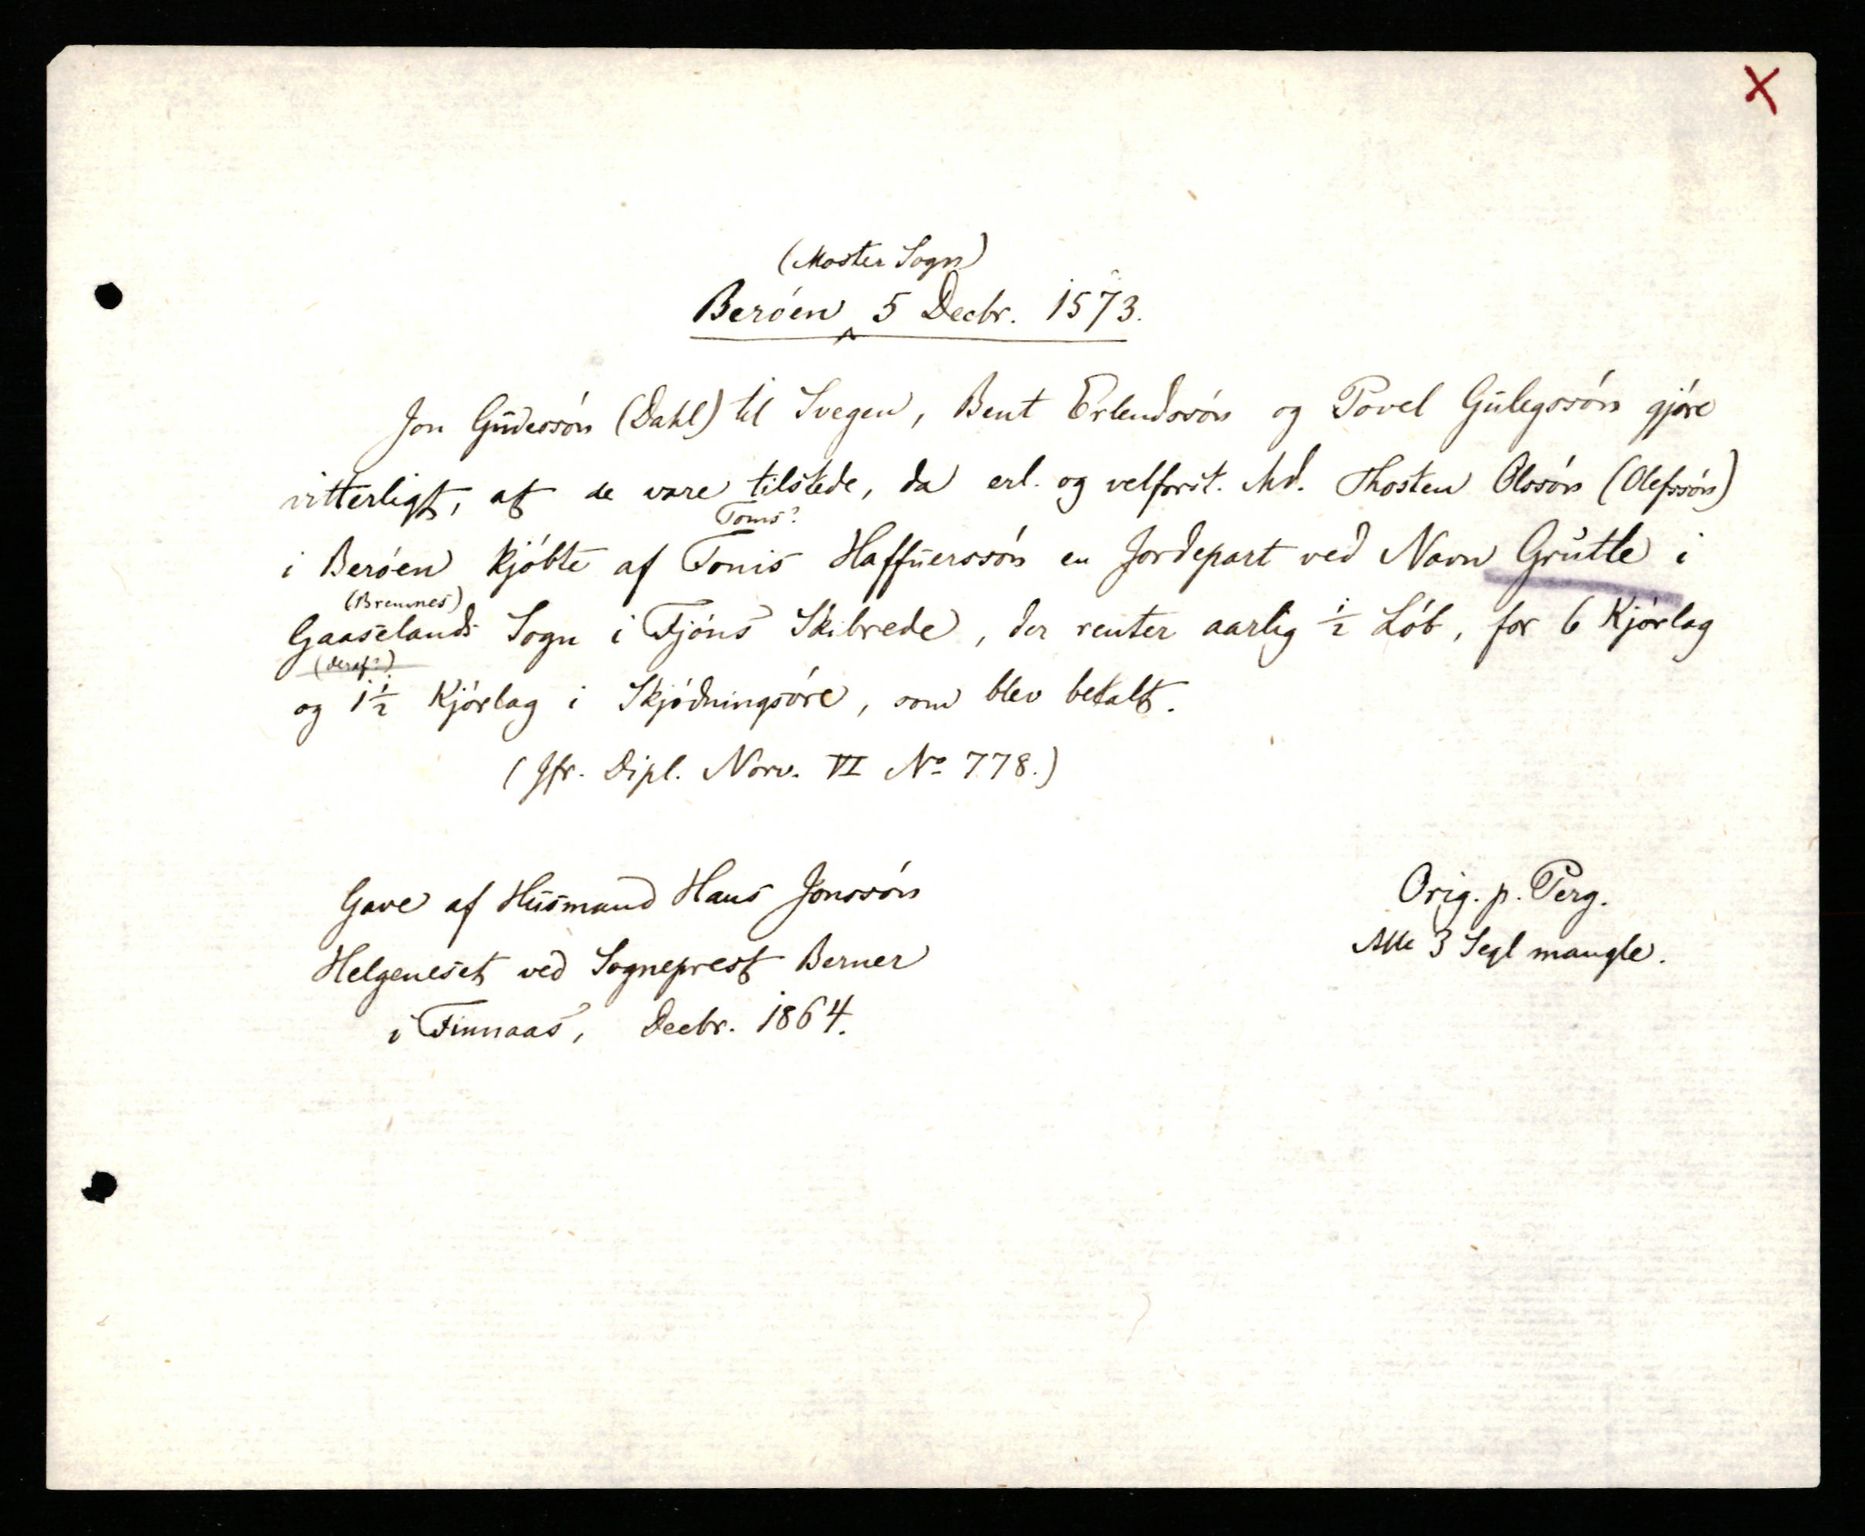 X
(Moster Sogn)
Beröen 5 Decbr. 1573.
Jon Gudessön (Dahl) til Svegen, Bent Erlendssön og Povel Gulegssön gjöre
vitterligt, at de vare tilstede, da erl. og velforst. Md. Thosten Olssön (Olefssön)
Tomis?
i Beröen kjöbte af Tonis Haffuerssön en Jordepart ved Navn Grutle i
(Bremnes)
Gaaselands Sogn i Fjöns Skibrede, der renter aarlig ½ Löb, for 6 Kjörlag
(deraf?)
og 1½ Kjörlag i Skjödningsöre, som blev betalt.
(Jfr. Dipl. Norv. VI No 778.)
Gave af Husmand Hans Jonssön
Helgeneset ved Sogneprest Berner
i Finnaas, Decbr. 1864.
Orig. p. Perg.
Alle 3 Segl mangle.